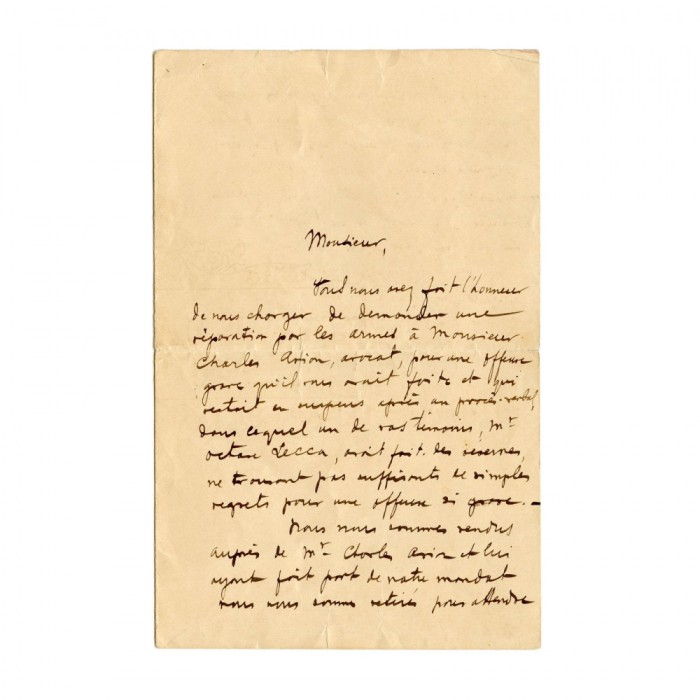 Monsieur,
Vous nous avez fait l'honneur
de nous charger de demander une
réparation par les armes à Monsieur
Charles Arion, avocat, pour une offense
grave qu'il vous avait faite et qui
restait en suspens après un procès-verbal,
dans lequel un de vos témoins, Mr
Octave Lecca, avait fait des réserves,
ne trouvant pas suffisants de simples
regrets pour une offense si grave. –
Nous nous sommes rendus
auprès de Mr Charles Arion et lui
ayant fait part de notre mandat
nous nous sommes retirés pour attendre